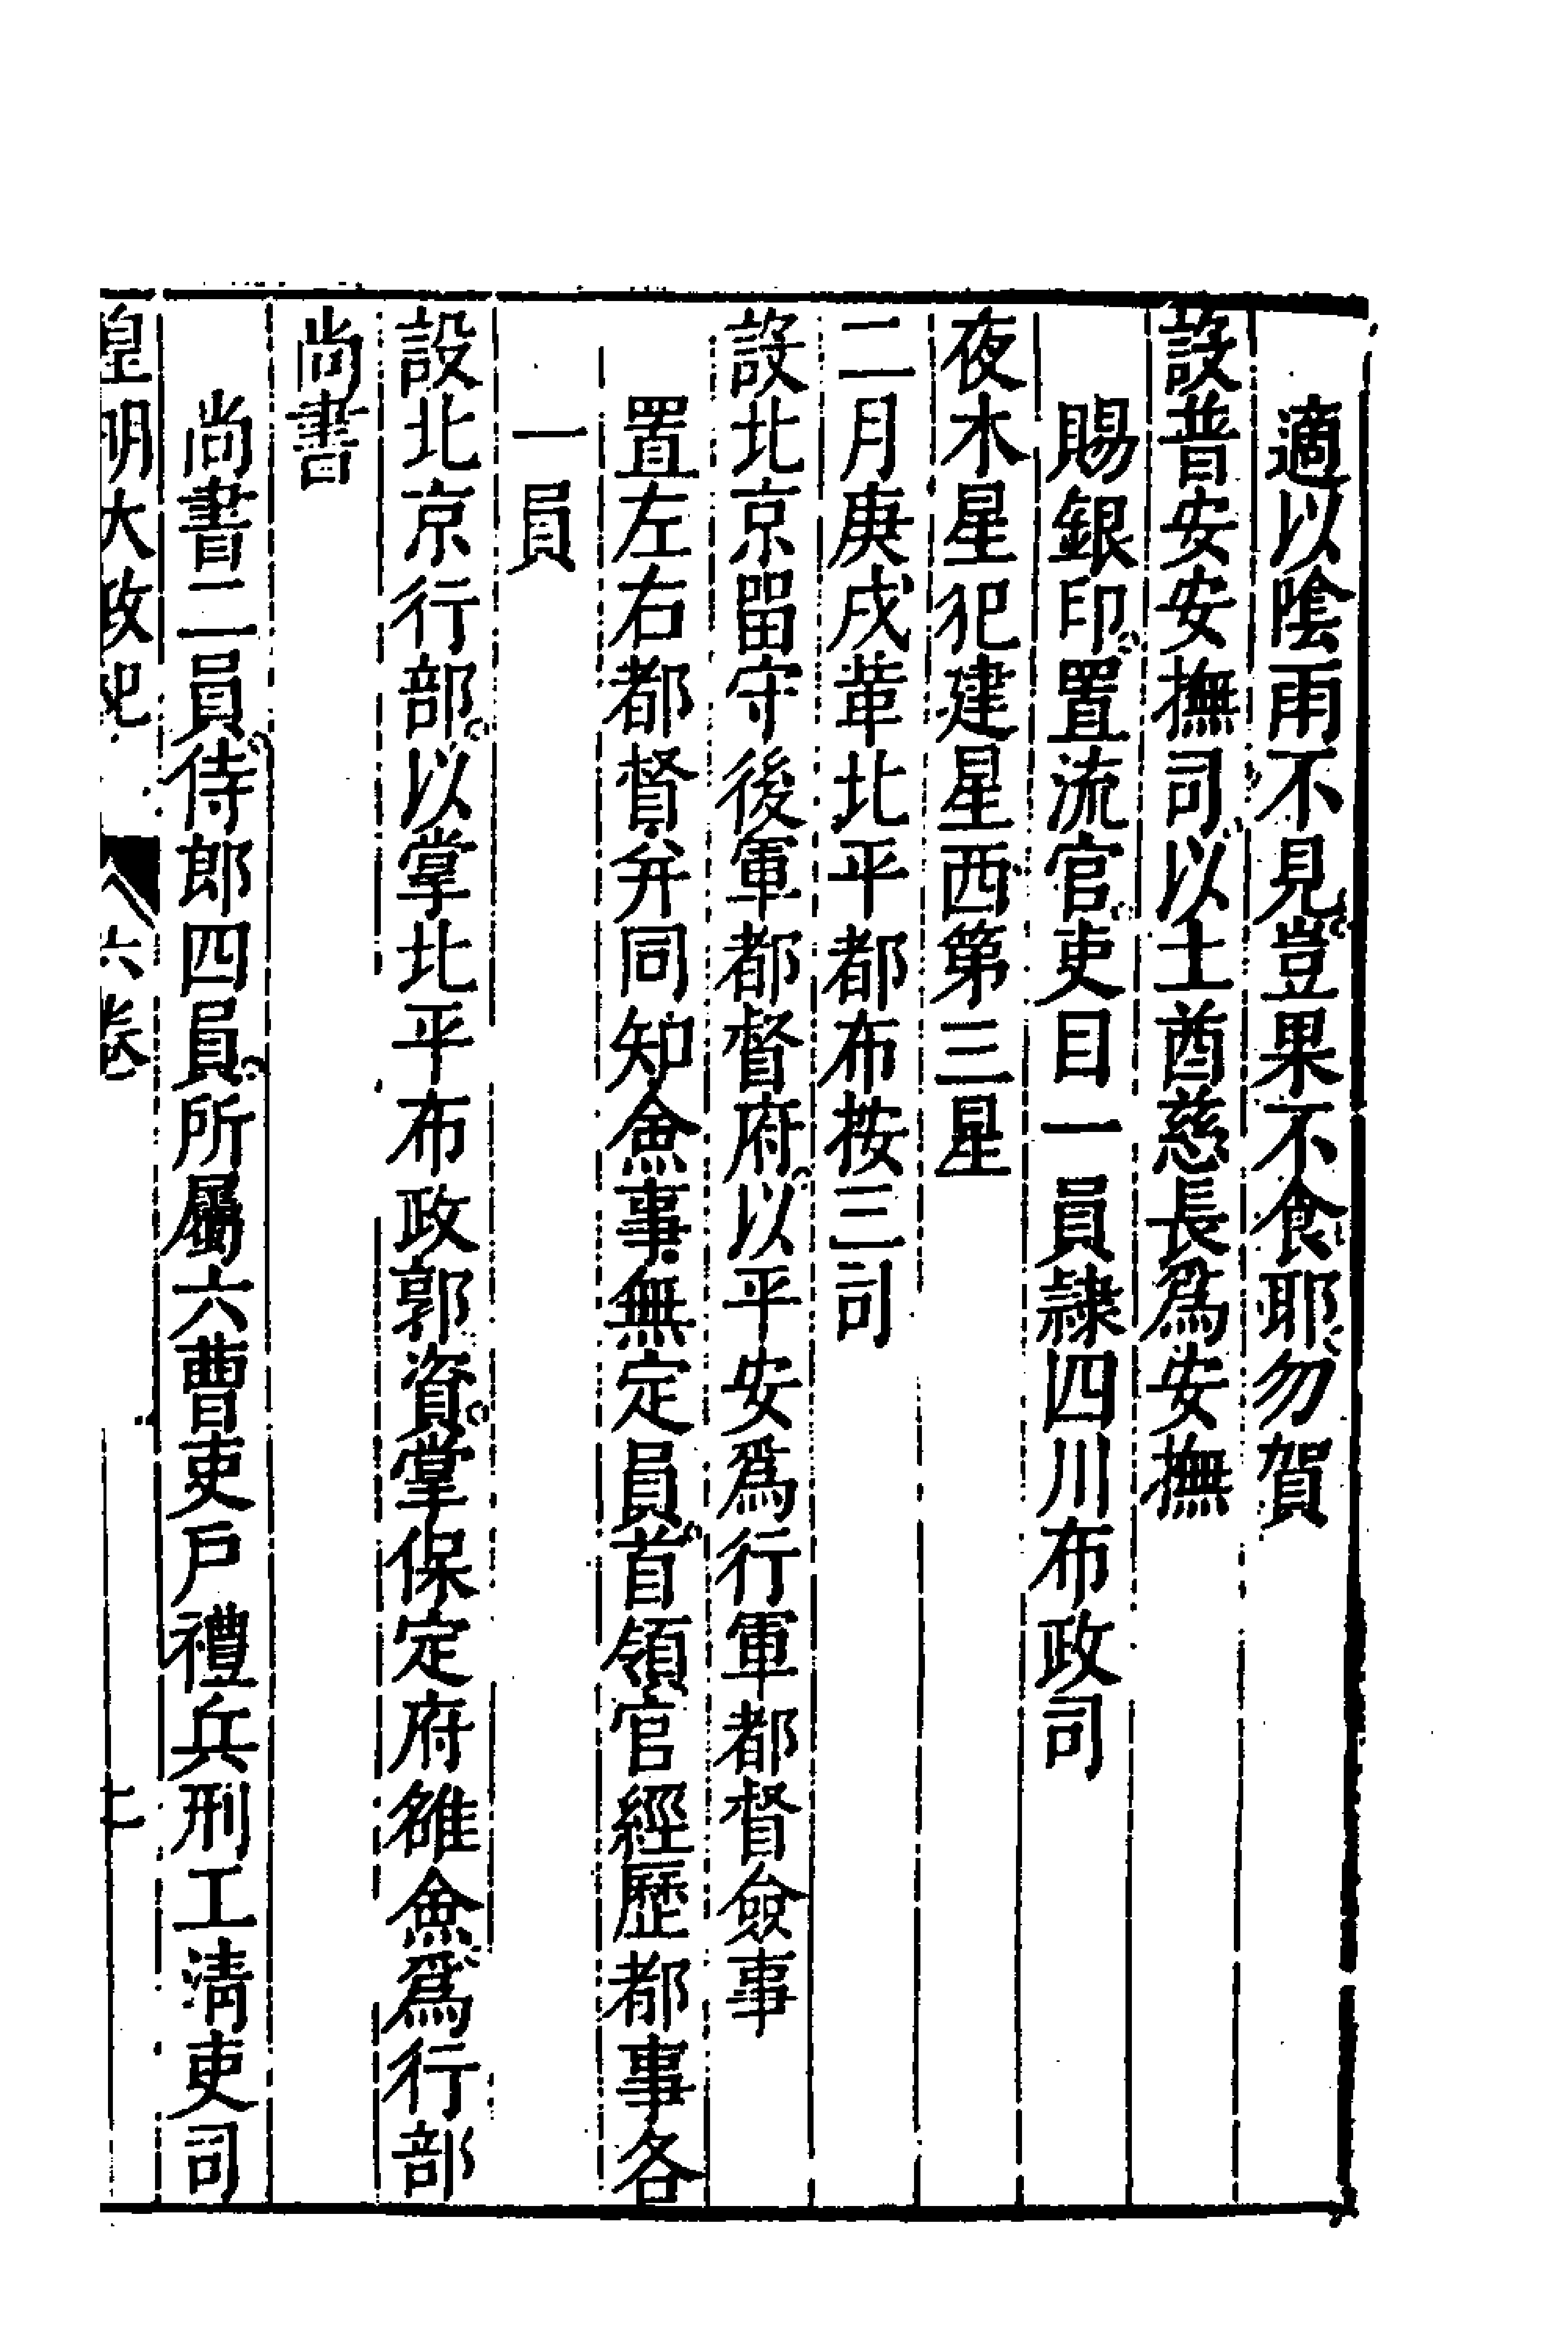 適以陰雨不見豈果不食耶勿賀
設普安安撫司以土酋慈長爲安撫
賜銀印置流官吏目一員隷四川布政司
夜木星犯建星西第三星
二月庚戌革北平都布按三司
設北京留守後軍都督府以平安爲行軍都督僉事
置左右都督并同知僉事無定員首領官經歷都事各
一員
設北京行部以掌北平布政郭資掌保定府雒僉爲行部
尚書
尚書二員侍郎四員所屬六曹吏戶禮兵刑工淸吏司
皇明大政紀 六卷